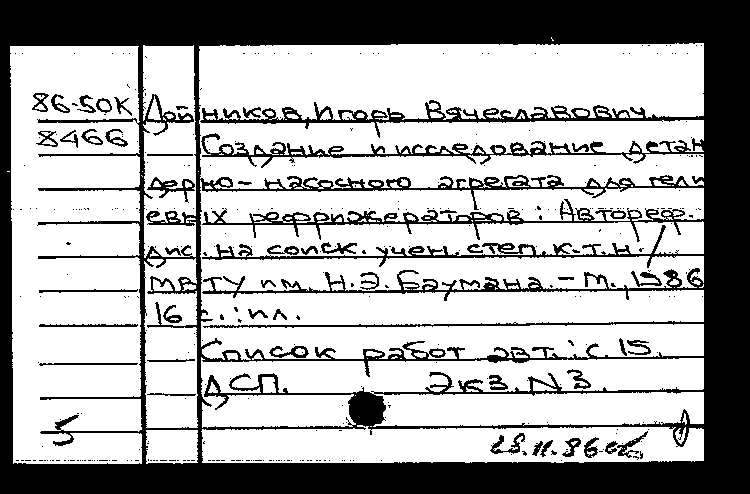 86-50К Дойников, Игорь Вячеславович.
8466 Создание и исследование детан
дерно-насосного агрегата для гели
евых рефрижераторов: Автореф.
дис. на соиск. учен. степ. к.т.н. /
МВТУ им. Н.Э. Баумана. - М., 1986
16 с.: ил.
Список работ авт.: с. 15.
ДСП. Экз. N3.
5
28.11.86